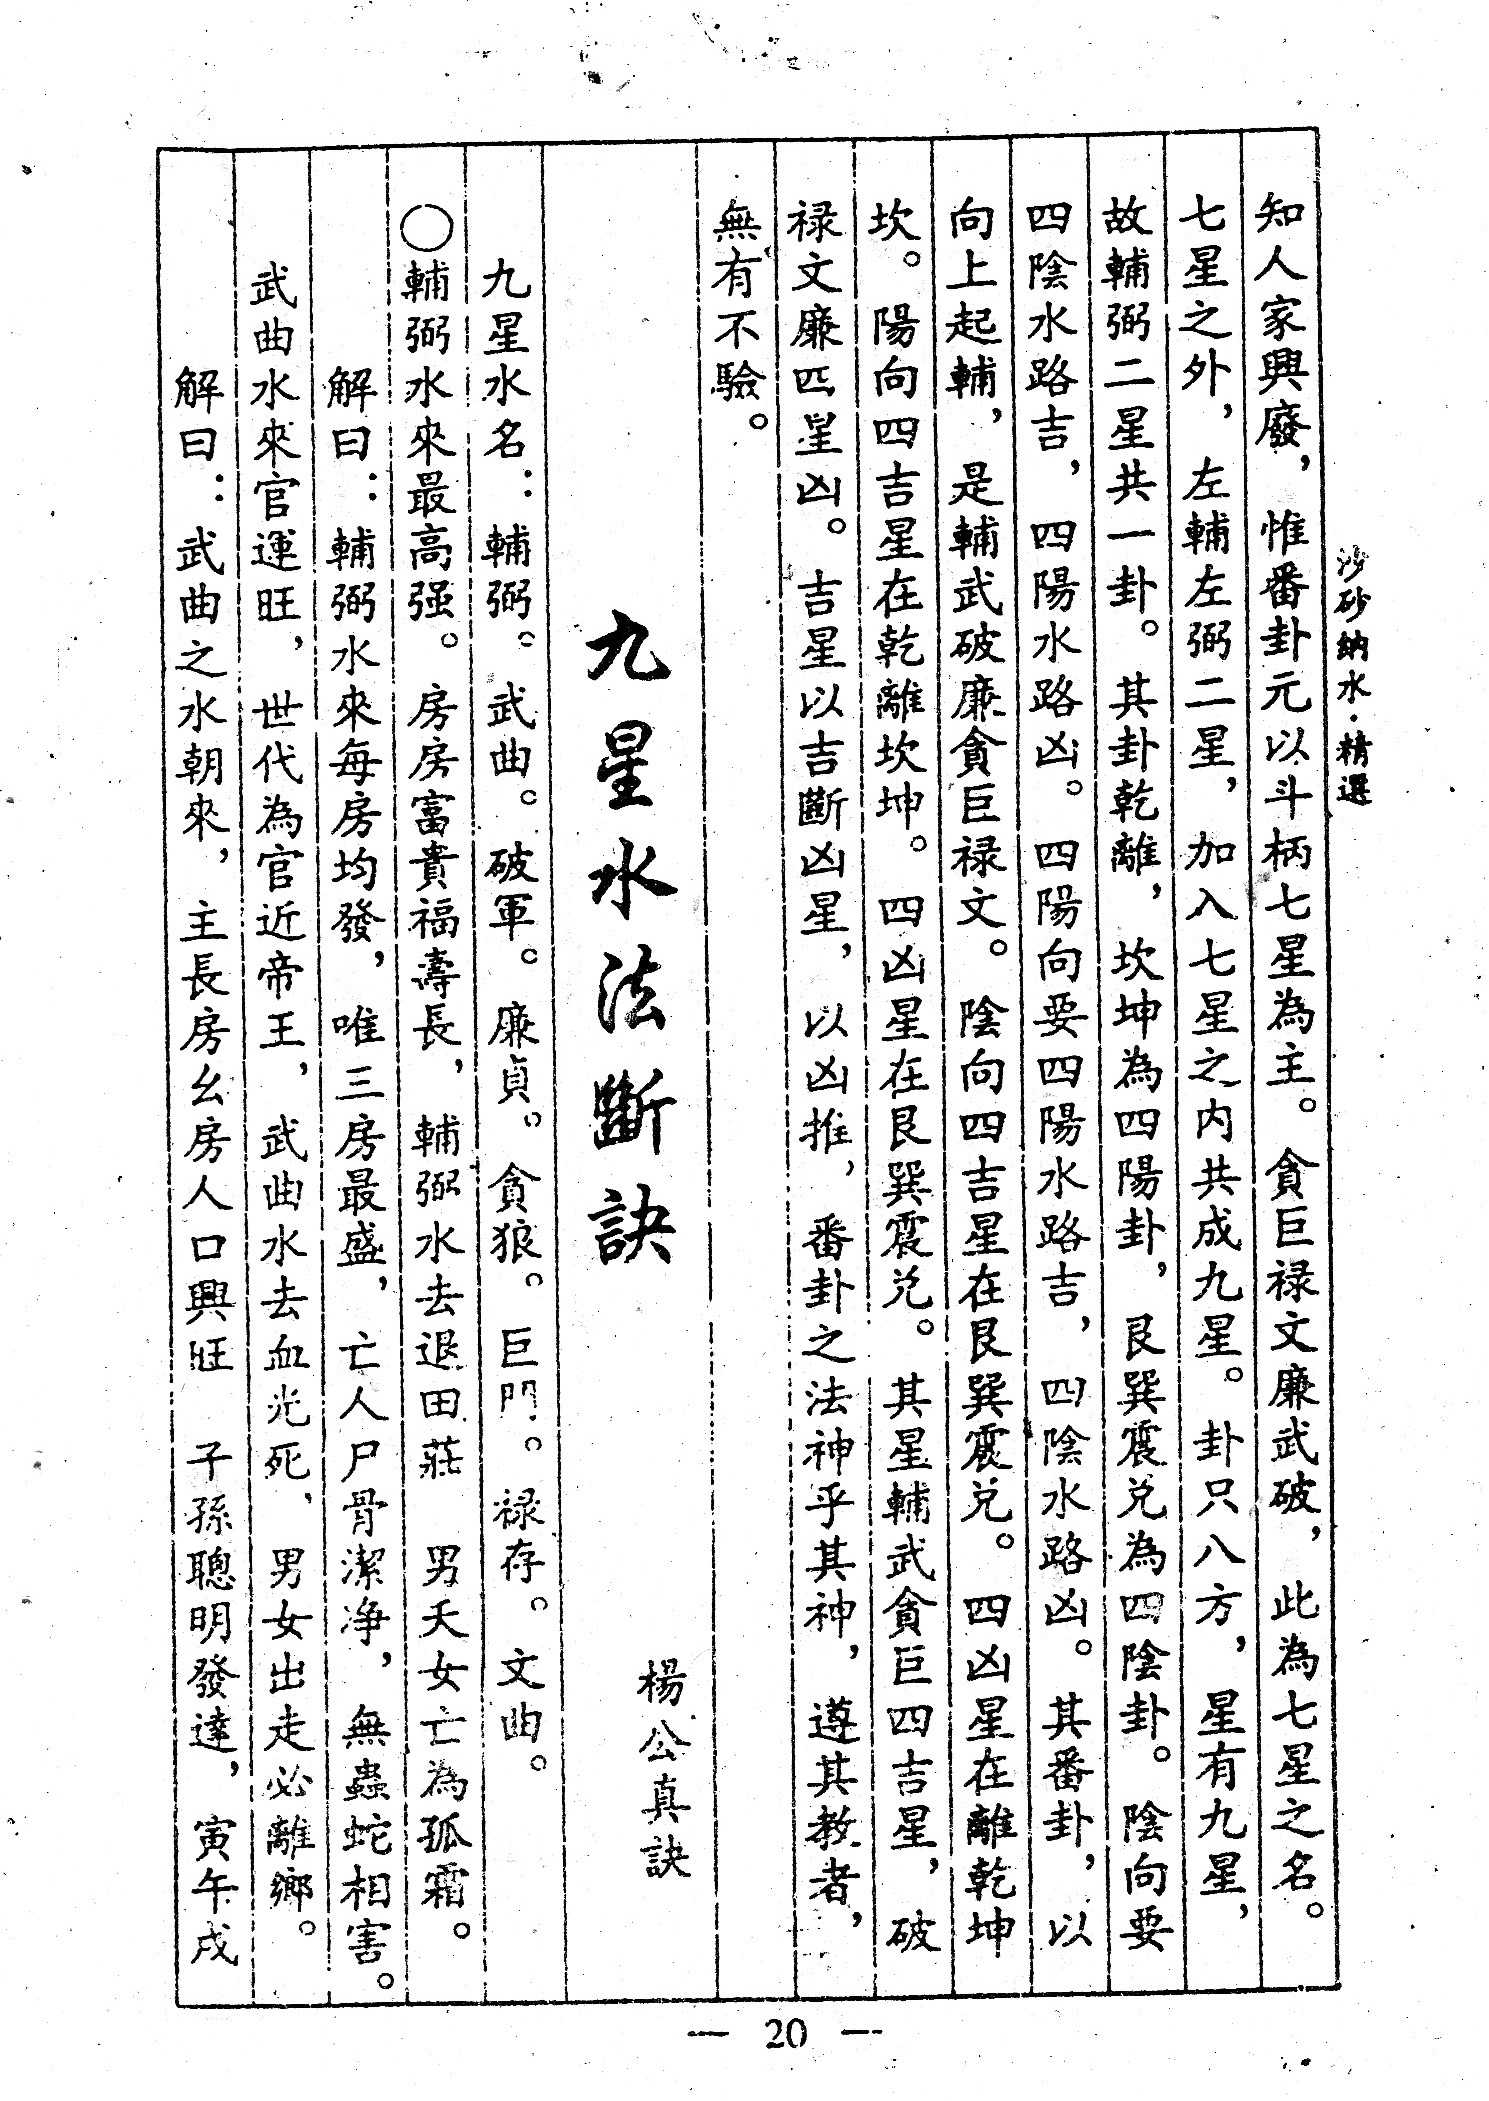 沙砂納水·精選
知人家興廢，惟番卦元以斗柄七星為主。貪巨禄文廉武破，此為七星之名。
七星之外，左輔左弼二星，加入七星之内共成九星。卦只八方，星有九星，
故輔弼二星共一卦。其卦乾離，坎坤為四陽卦，艮巽震兑為四陰卦。陰向要
四陰水路吉，四陽水路凶。四陽向要四陽水路吉，四陰水路凶。其番卦，以
向上起輔，是輔武破廉貪巨禄文。陰向四吉星在艮巽震兑。四凶星在離乾坤
坎。陽向四吉星在乾離坎坤。四凶星在艮巽震兑。其星輔武貪巨四吉星，破
禄文廉四星凶。吉星以吉斷凶星，以凶推，番卦之法神乎其神，遵其教者，
無有不驗。
九星水法斷訣
楊公真訣
九星水名：輔弼。武曲。破軍。廉貞。貪狼。巨門。禄存。文曲。
〇輔弼水來最高强。房房富貴福壽長，輔弼水去退田莊 男夭女亡為孤霜。
解曰：輔弼水來每房均發，唯三房最盛，亡人尸骨潔净，無蟲蛇相害。
武曲水來官運旺，世代為官近帝王，武曲水去血光死，男女出走必離鄉。
解曰：武曲之水朝來，主長房幺房人口興旺 子孫聰明發達，寅午戌
— 20 —